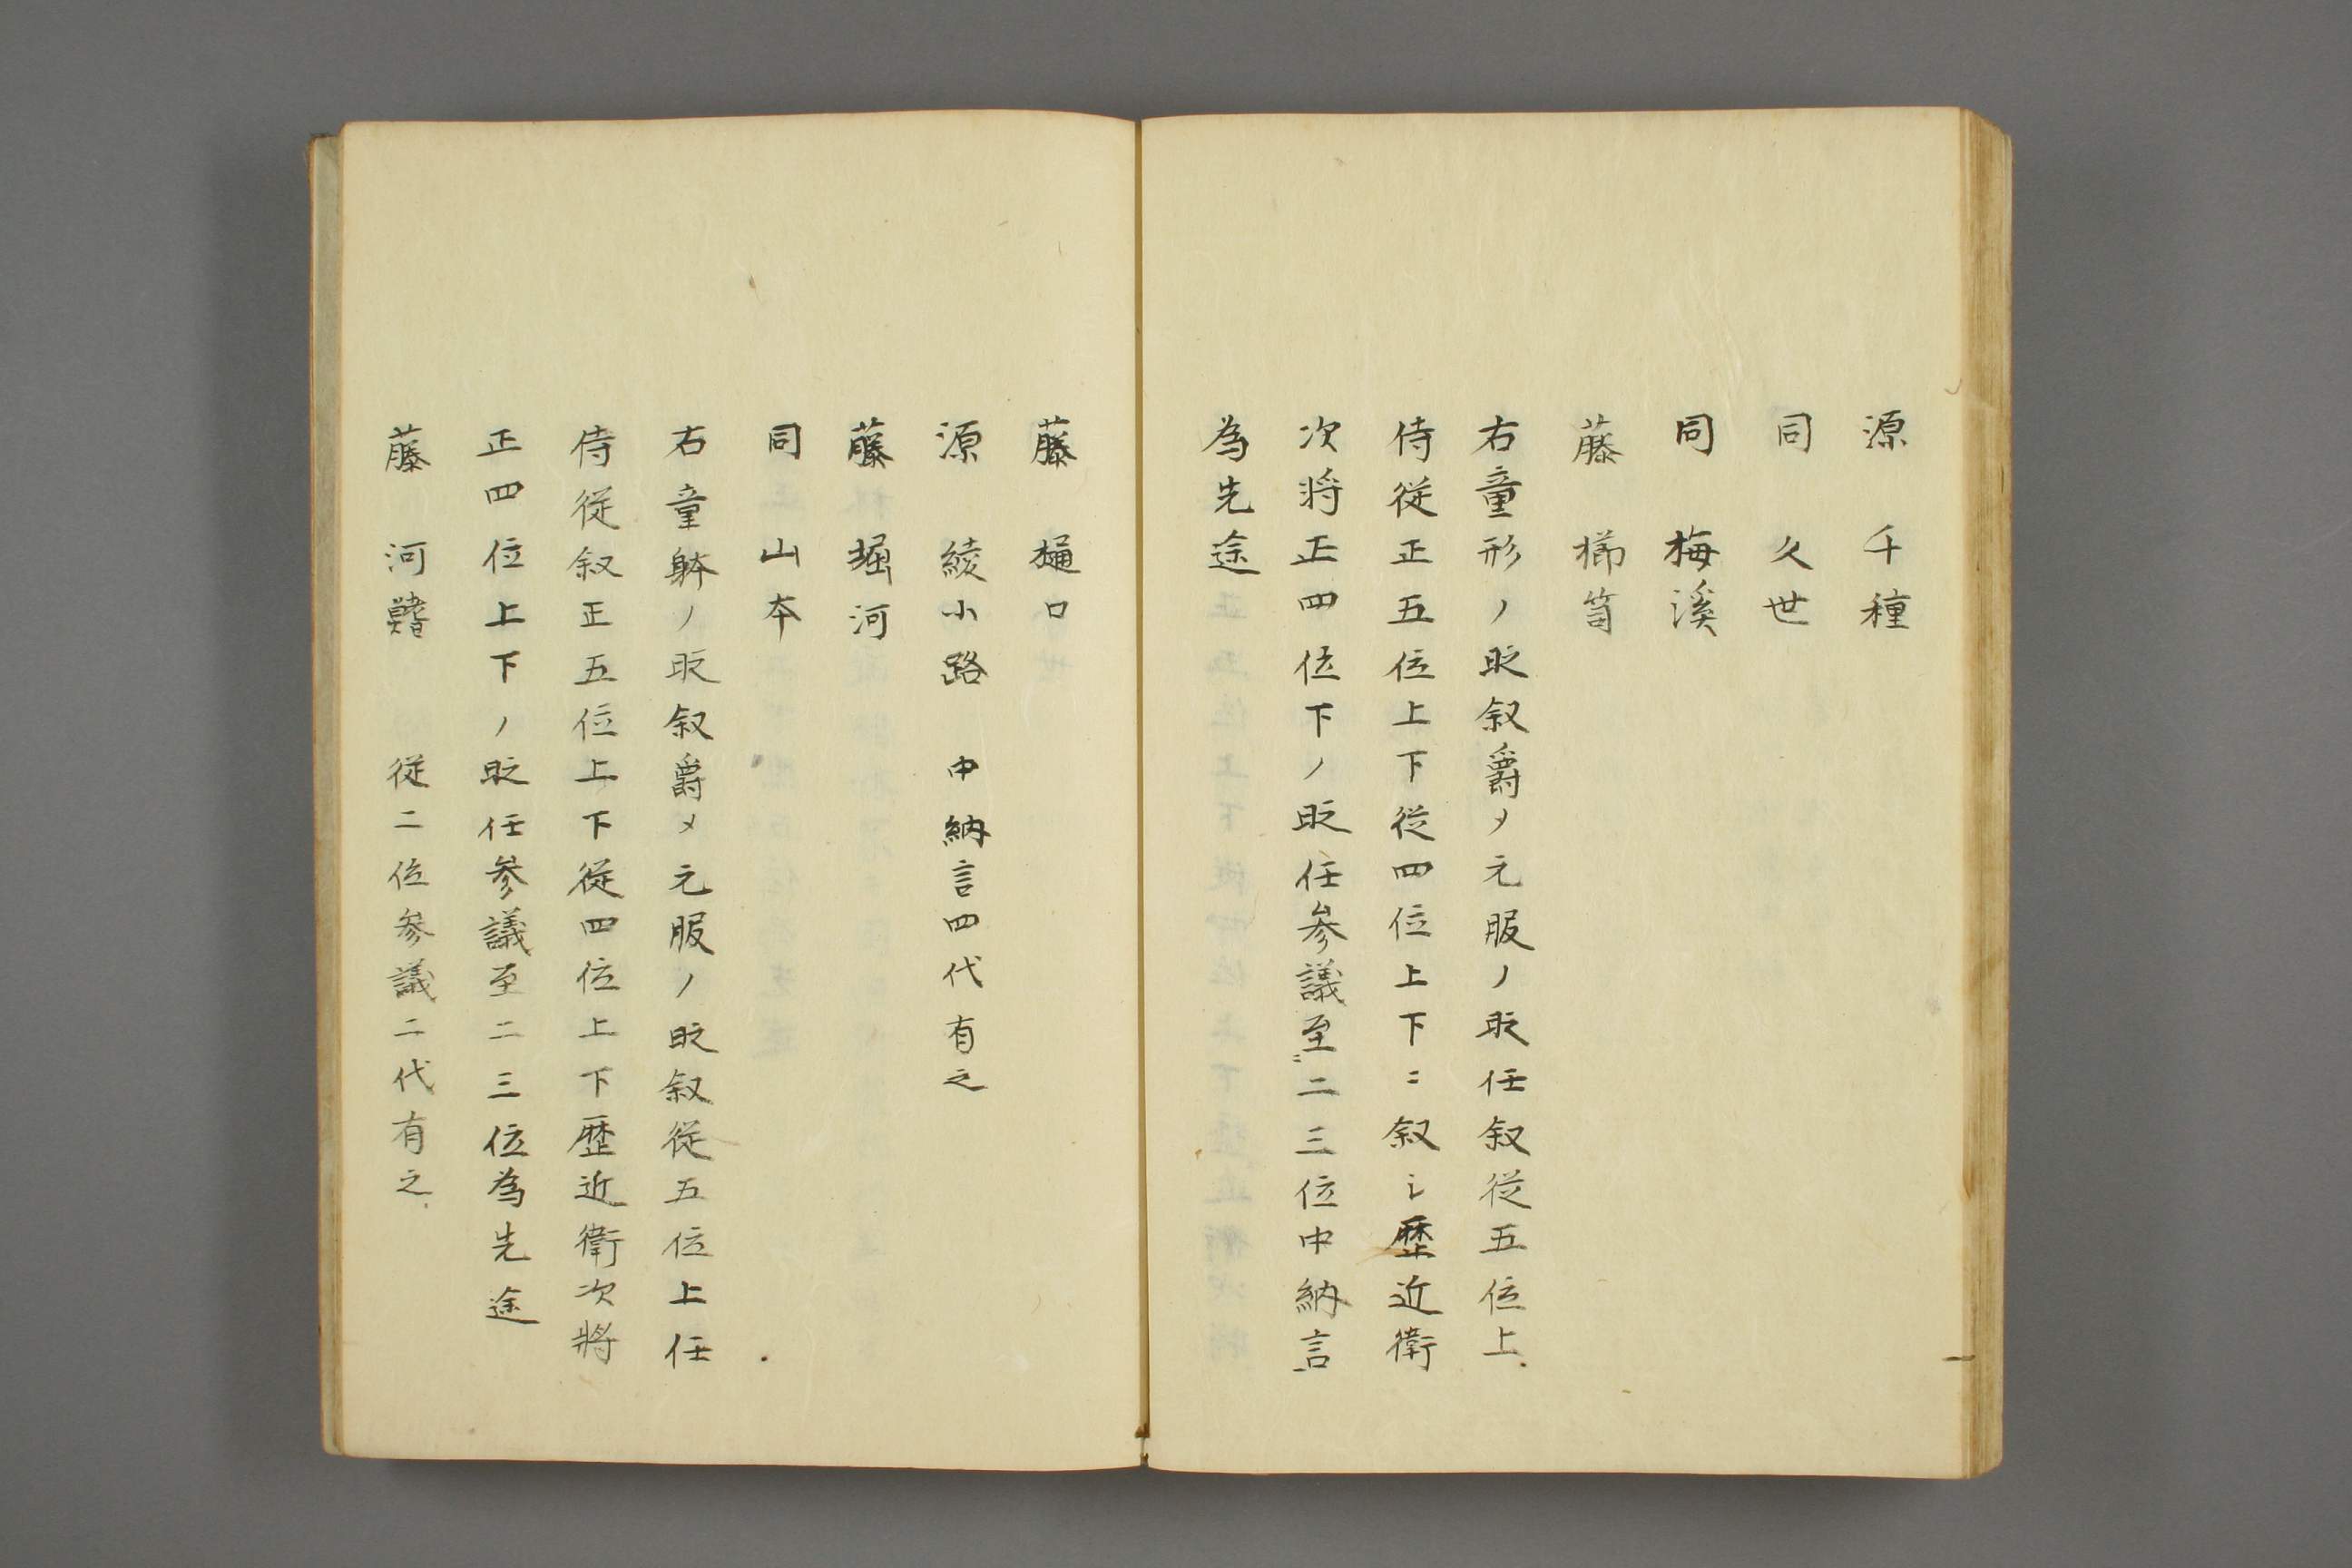 源　千種
同　久世
同　梅溪
藤　櫛笥
右童形ノ時叙爵〆元服ノ時任叙従五位上
侍従正五位上下従四位上下ニ叙シ歴近衛
次将正四位下ノ時任参議至ニ二三位中納言
為先途
藤　樋口
源　綾小路　中納言四代有之
藤　堀河
同　山本
右童躰ノ時叙爵〆元服ノ時叙従五位上任
侍従叙正五位上下従四位上下歴近衛次將
正四位上下ノ時任参議至二三位為先途
藤　河鰭　従二位参議二代有之